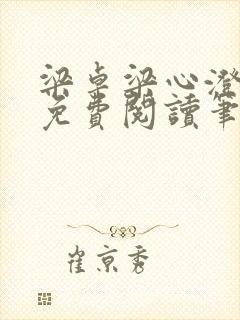 梁卓梁心澄
免費閱讀筆
崔京秀